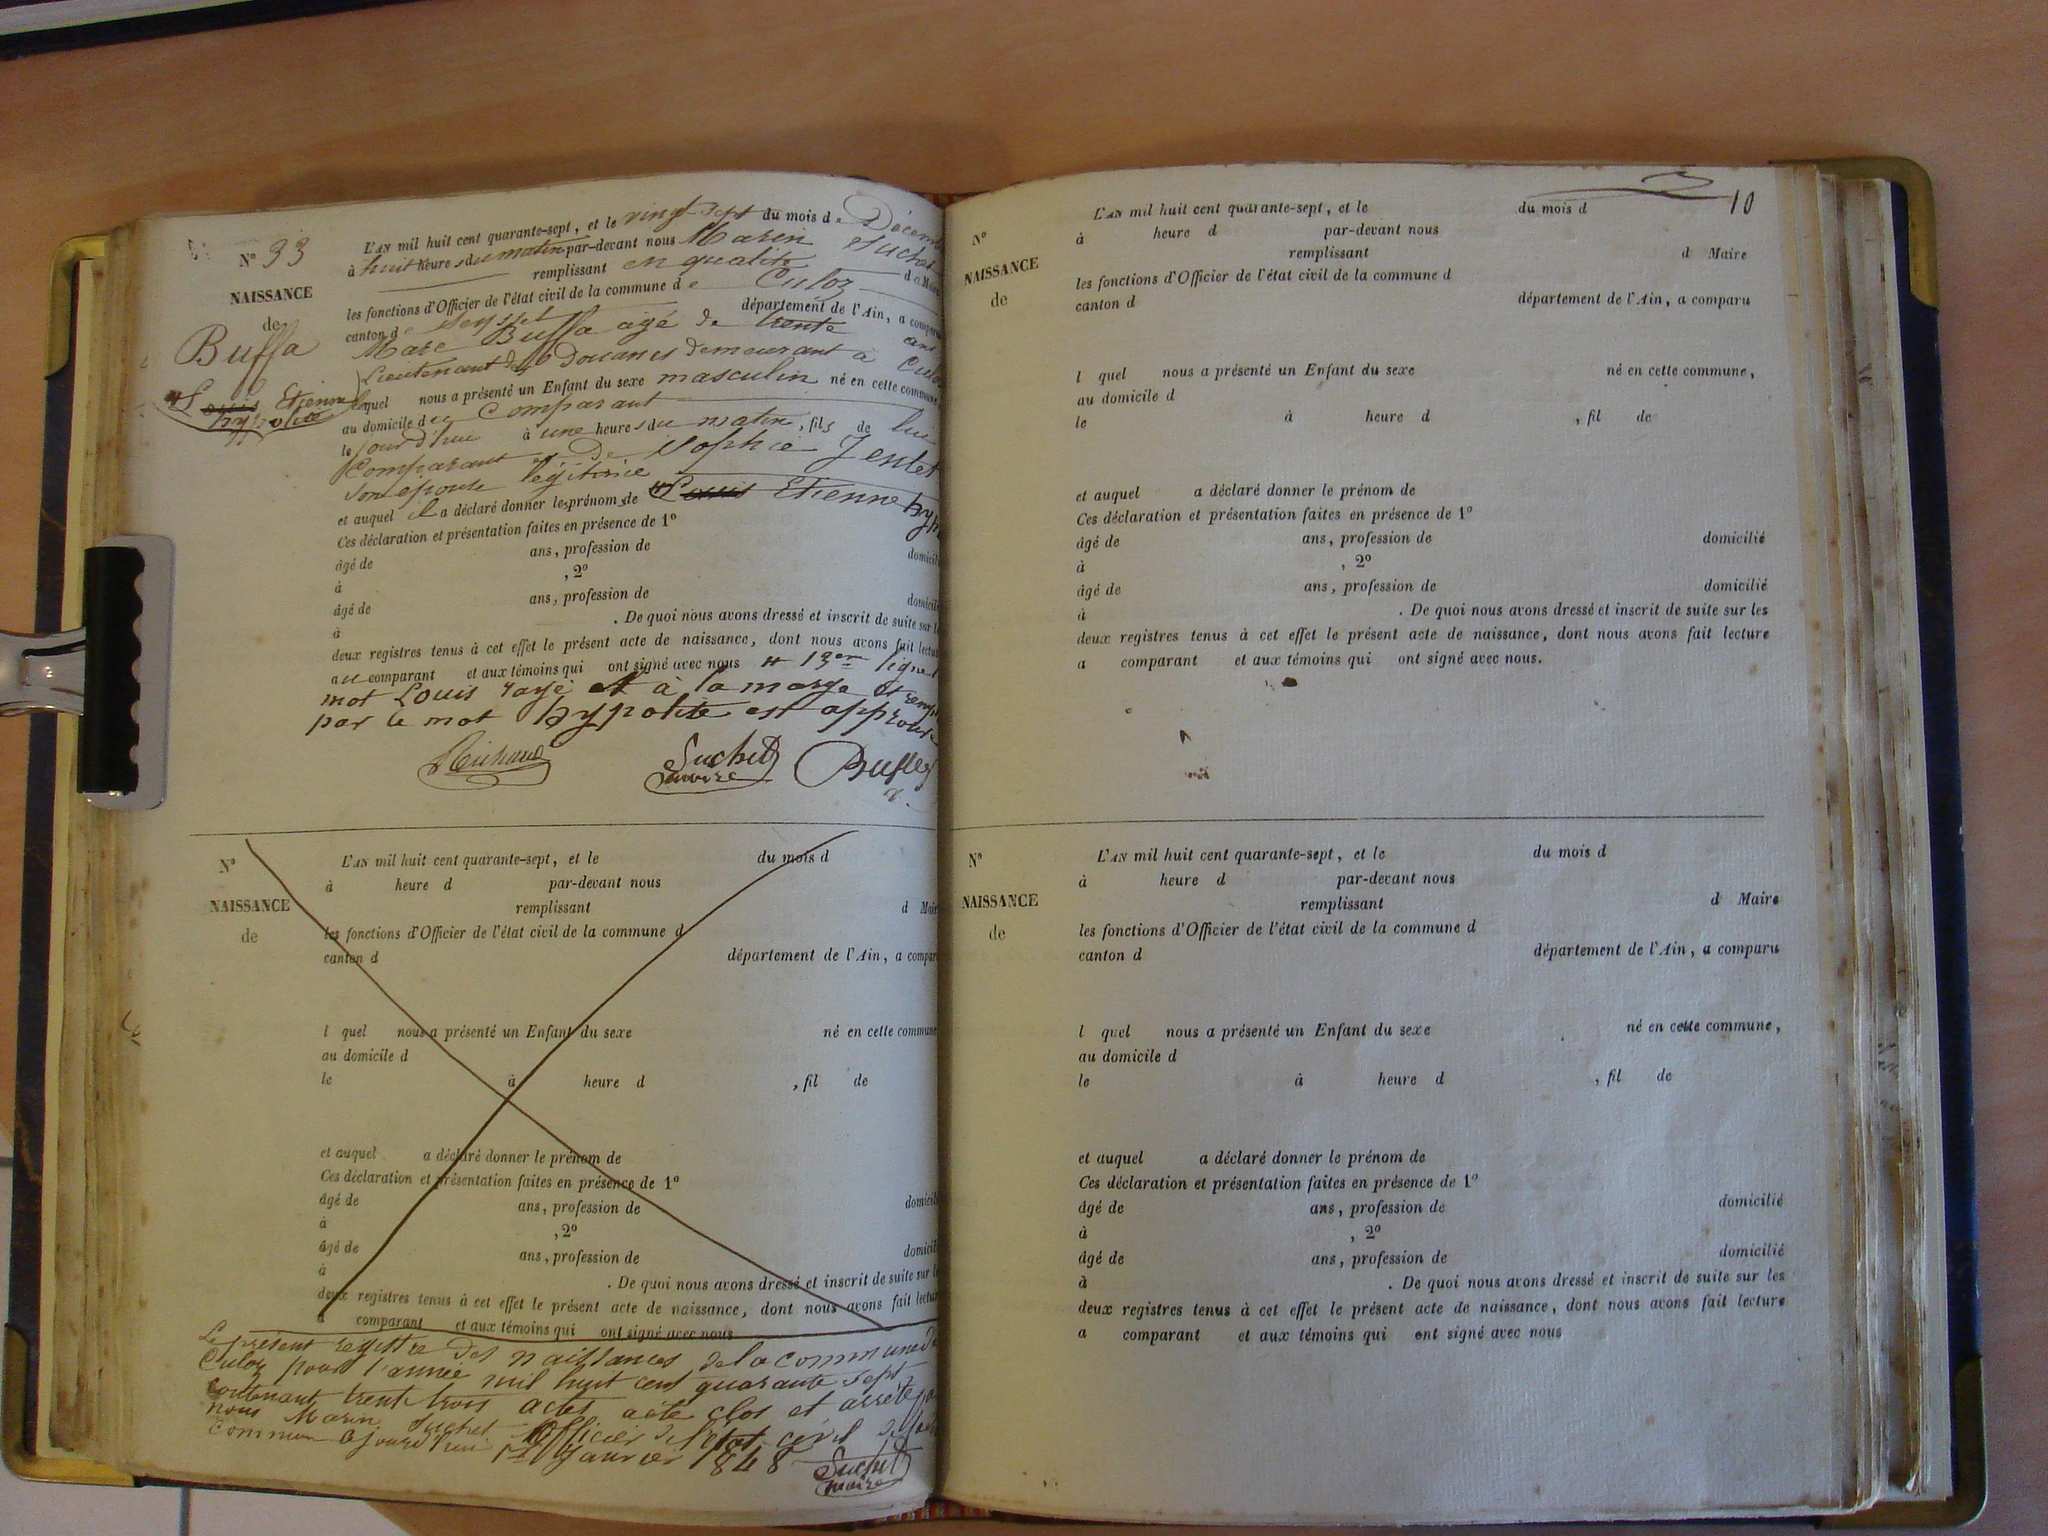 N° 33
NAISSANCE
de
Buffa
Louis Etienne
hyppolite
L'AN mil huit cent quarante-sept, et le vingt sept du mois de Décem
à huit heures du matin par-devant nous Marin Suchet
remplissant en qualité de Maire
les fonctions d'Officier de l'état civil de la commune de Culoz
canton de Seyssel département de l'Ain, a comparu
Marc Buffa agé de trente ans
Lieutenant des Douanes demeurant à Culoz
lequel nous a présenté un Enfant du sexe masculin né en cette commune,
au domicile du Comparant
le jourd'hui à une heure du matin, fils de lui
Comparant et de Sophie Jentet
son epouse légitime
et auquel il a déclaré donner les prénoms de Louis Etienne hyp
Ces déclaration et présentation faites en présence de 1°
âgé de ans, profession de domicilié
à , 2°
âgé de ans, profession de domicilié
à . De quoi nous avons dressé et inscrit de suite sur les
deux registres tenus à cet effet le présent acte de naissance, dont nous avons fait lecture
au comparant et aux témoins qui ont signé avec nous # 13er ligne
mot Louis rayé et à la marge et remp
par le mot hypolite est approuvé
Michaud Suchet Buffa
maire
N°
NAISSANCE
de
L'AN mil huit cent quarante-sept, et le du mois d
à heure d par-devant nous
remplissant d Maire
les fonctions d'Officier de l'état civil de la commune d
canton d département de l'Ain, a comparu
l quel nous a présenté un Enfant du sexe né en cette commune
au domicile d
le à heure d , fil de
et auquel a déclaré donner le prénom de
Ces déclaration et présentation faites en présence de 1°
âgé de ans, profession de domicilié
à , 2°
âgé de ans, profession de domicilié
à . De quoi nous avons dressé et inscrit de suite sur les
deux registres tenus à cet effet le présent acte de naissance, dont nous avons fait lecture
a comparant et aux témoins qui ont signé avec nous
Le présent registre des naissances de la commune de
Culoz pour l'année mil huit cent quarante sept
contenant trente trois actes a été clos et arrêté par
nous Marin Suchet Officier de l'état civil de la
commune ajourd'hui 1er Janvier 1848 Suchet
maire
10
N°
NAISSANCE
de
L'AN mil huit cent quarante-sept, et le du mois d
à heure d par-devant nous
remplissant d Maire
les fonctions d'Officier de l'état civil de la commune d
canton d département de l'Ain, a comparu
l quel nous a présenté un Enfant du sexe né en cette commune,
au domicile d
le à heure d , fil de
et auquel a déclaré donner le prénom de
Ces déclaration et présentation faites en présence de 1°
âgé de ans, profession de domicilié
à , 2°
âgé de ans, profession de domicilié
à . De quoi nous avons dressé et inscrit de suite sur les
deux registres tenus à cet effet le présent acte de naissance, dont nous avons fait lecture
a comparant et aux témoins qui ont signé avec nous.
N°
NAISSANCE
de
L'AN mil huit cent quarante-sept, et le du mois d
à heure d par-devant nous
remplissant d Maire
les fonctions d'Officier de l'état civil de la commune d
canton d département de l'Ain, a comparu
l quel nous a présenté un Enfant du sexe né en cette commune,
au domicile d
le à heure d , fil de
et auquel a déclaré donner le prénom de
Ces déclaration et présentation faites en présence de 1°
âgé de ans, profession de domicilié
à , 2°
âgé de ans, profession de domicilié
à . De quoi nous avons dressé et inscrit de suite sur les
deux registres tenus à cet effet le présent acte de naissance, dont nous avons fait lecture
a comparant et aux témoins qui ont signé avec nous